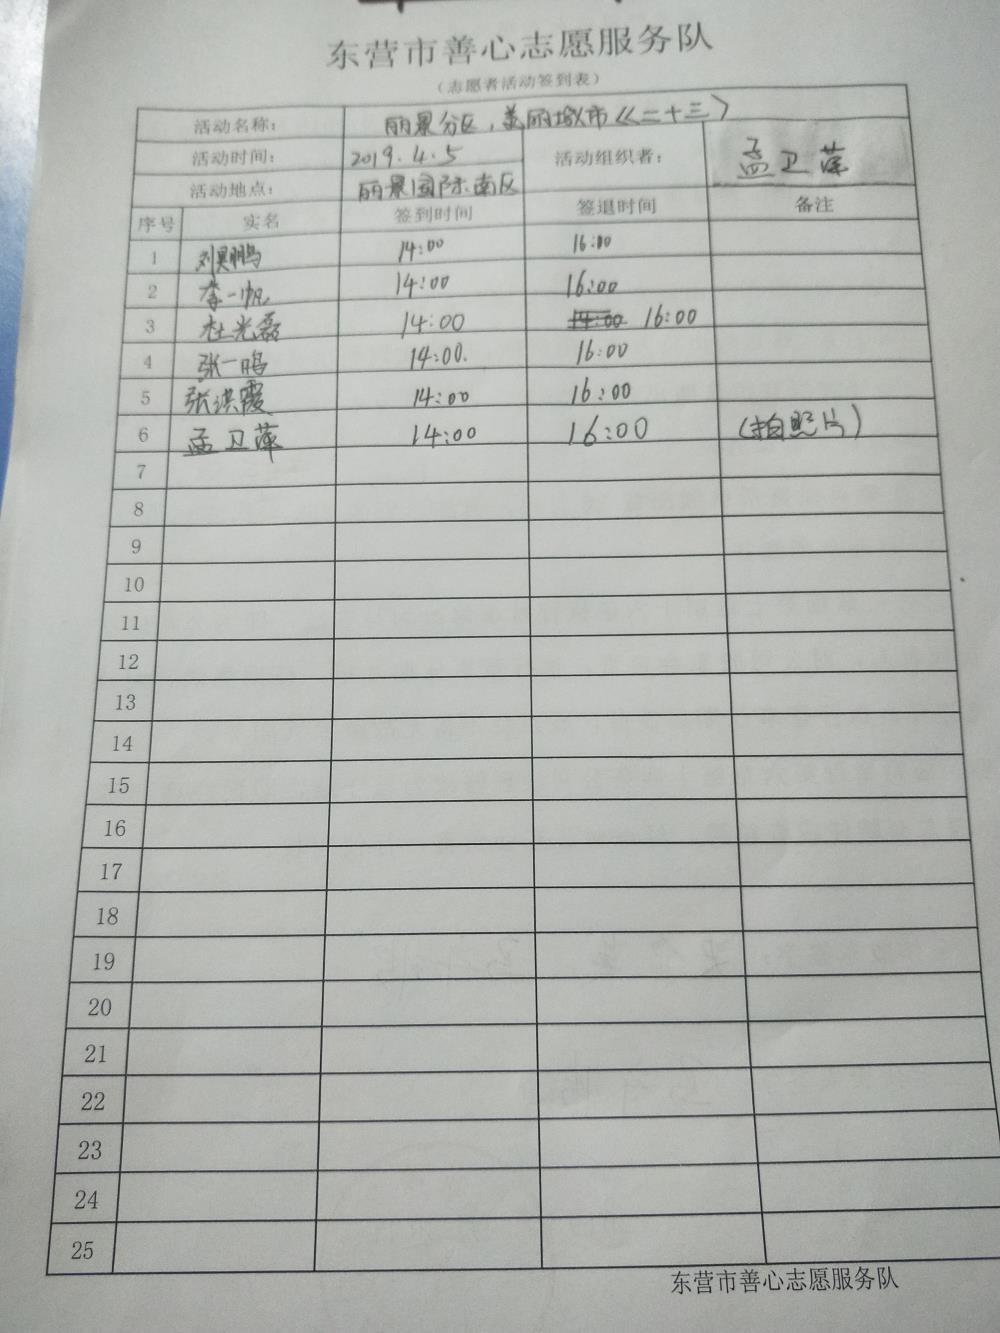 东营市善心志愿服务队
（志愿者活动签到表）
活动名称： 丽景分区，美丽城市《二十三》
活动时间： 2019.4.5 活动组织者： 孟卫萍
活动地点： 丽景国际南区
序号 实名 签到时间 签退时间 备注
1 刘昊鹏 14:00 16:00
2 李一帆 14:00 16:00
3 杜光磊 14:00 14:00 16:00
4 张一鸣 14:00. 16:00
5 张洪霞 14:00 16:00
6 孟卫萍 14:00 16:00 （拍照片）
7
8
9
10
11
12
13
14
15
16
17
18
19
20
21
22
23
24
25
东营市善心志愿服务队